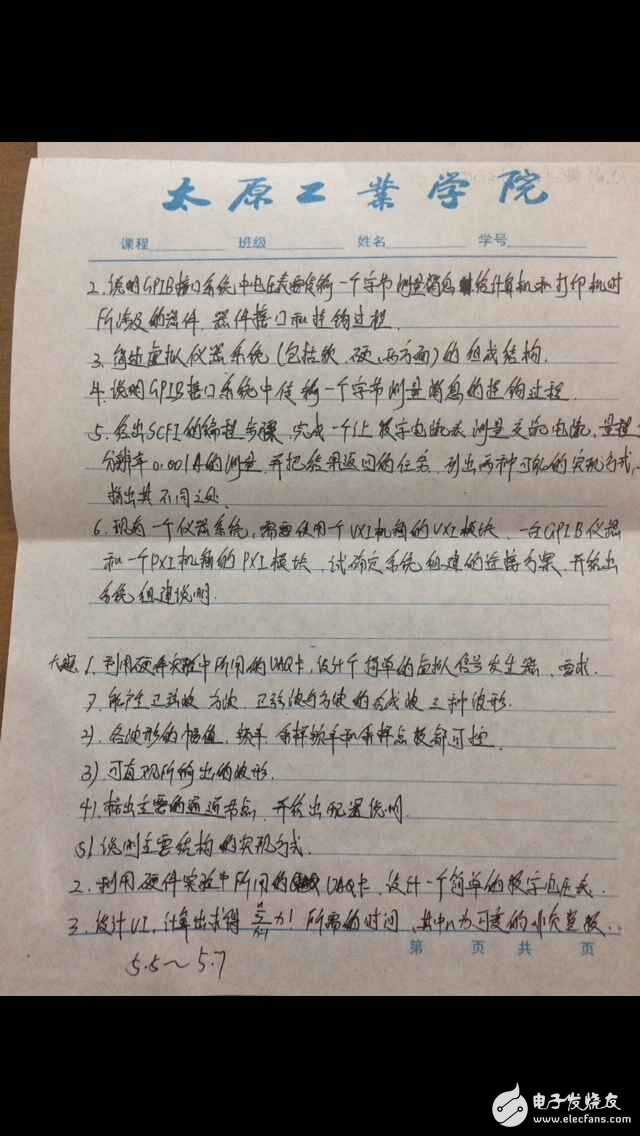 太原工业学院
课程 班级 姓名 学号
2. 说明GPIB接口系统中电压表要传输一个字节测量消息给计算机和打印机时
所涉及的器件、器件接口和挂钩过程.
3. 简述虚拟仪器系统(包括软、硬、两方面)的组成结构.
4. 说明GPIB接口系统中传输一个字节测量消息的挂钩过程.
5. 给出SCPI的编程步骤,完成一个让数字电流表测量交流电流,量程
分辨率0.001A的测量,并把结果返回的任务,列出两种可能的实现方式,
指出其不同之处.
6. 现有一个仪器系统,需要使用个VXI机箱的VXI模块、一台GPIB仪器
和一个PXI机箱的PXI模块,试确定系统组建的连接方案,并给出
系统组建说明.
大题 1. 利用硬件实验中所用的DAQ卡,设计个简单的虚拟信号发生器,要求.
1) 能产生正弦波、方波、正弦波与方波的合成波三种波形.
2). 各波形的幅值、频率、采样频率和采样点数都可控.
3) 可直观所输出的波形.
4). 标出主要的通道节点,并给出配置说明.
5). 说明主要结构的实现方式.
2. 利用硬件实验中所用的DAQ卡,设计一个简单的数字电压表.
3. 设计VI,计算出求得 所需的时间,其中n为可变的非负整数.
第 页 共 页
5.5～5.7
电子发烧友
www.elecfans.com